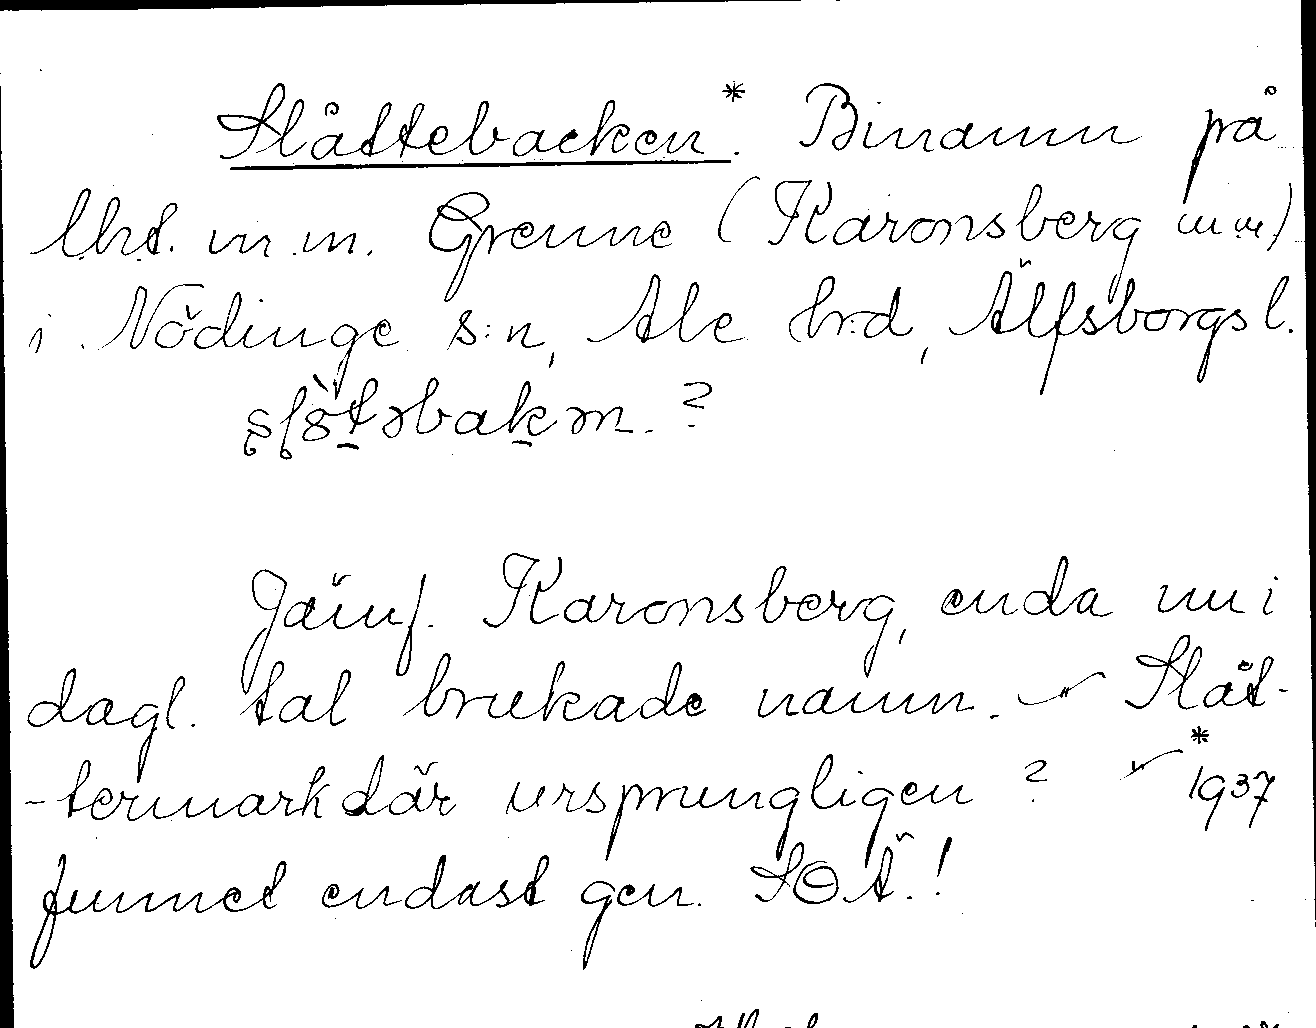 Slåttebacken*. Binamn på
lht. m.m. Grenne (Karonsberg m m)
i Nödinge s:n, Ale hrd, Älfsborgs l.
?
Jämf. Karonsberg, enda nu i
dagl. tal brukade namn. – Slåt-
-termark där ursprungligen? – * 1937
funnet endast gen. SOÄ.!